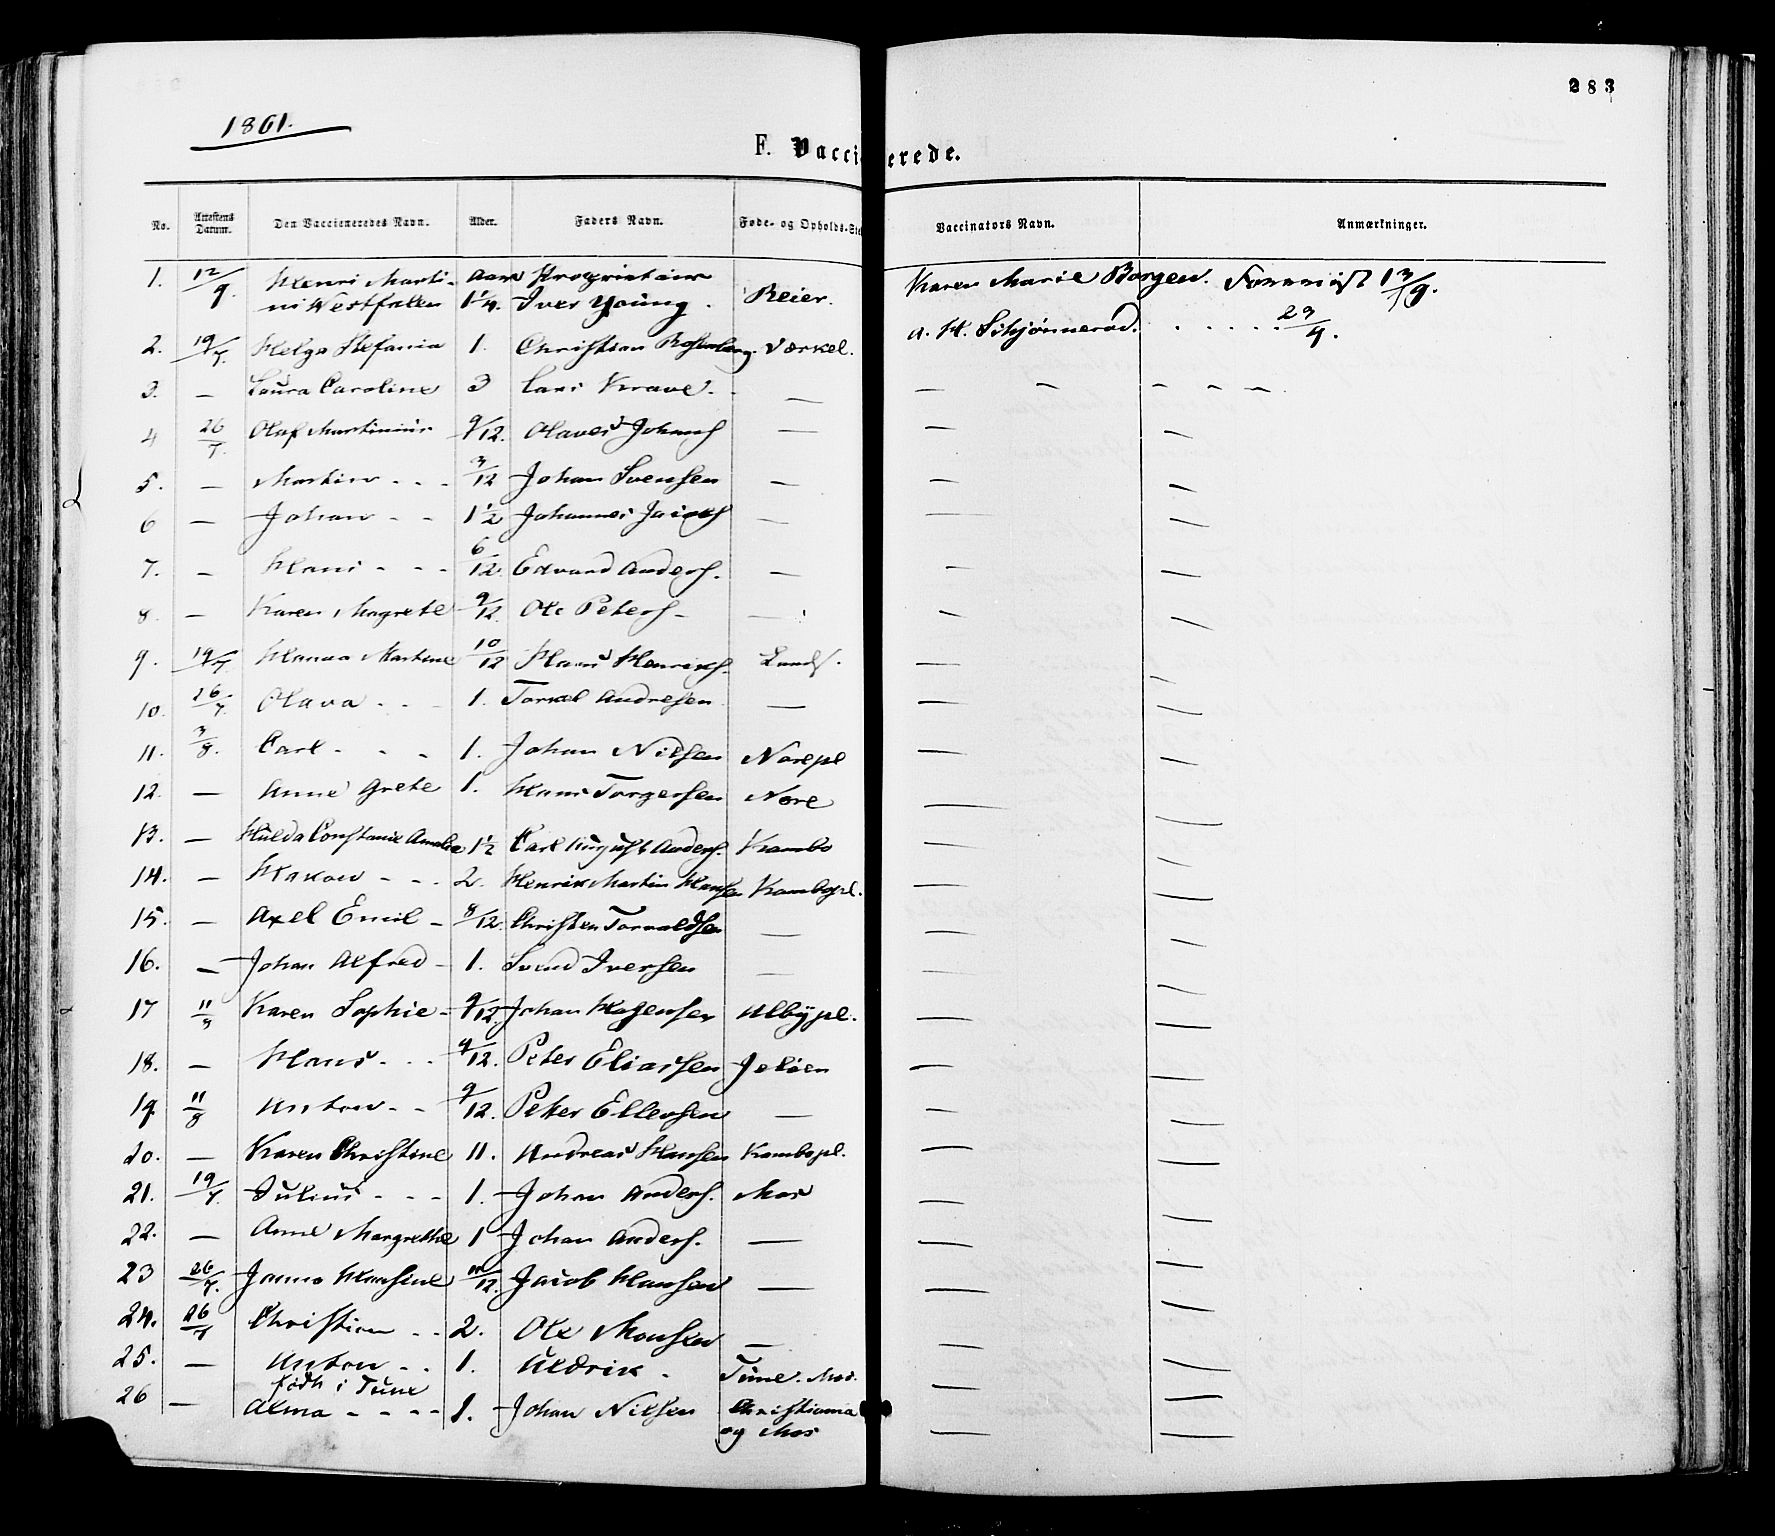 283
1861.
F. Vaccinerede.
No. Attestens Datum. Den Vaccineredes Navn. Alder. Faders Navn. Føde- og Opholds-Sted Vaccinators Navn. Anmærkninger.
1. 12/9. Henri Marti- Aar Proprietær Karen Marie Borgen. 13/9.
ni Westfalen 1 1/4. Iver Young. Reier.
2. 19/7. Helga Stefania 1. Christian Rosenberg. Værkel. A. H. Schjønnerød. . . . . . 29/9.
3. — Laura Caroline 3 Lars Krave. — — — — — —
4 26/7. Olaf Martinius 9/12. Olaves Johans — — —
5. — Martin - - - 3/12 Johan Svensen — — —
6 — Johan - - 1 1/2 Johannes Jacobs — — —
7. — Hans - - - 6/12. Edvard Anders. — — —
8 — Karen Magrete 9/12. Ole Peters - — — —
9. 19/7. Hanna Martine 10/12 Hans Henriks. Lands. — —
10. 26/7. Olava - - - 1. Torkel Andresen — — —
11. 3/8. Carl - - - 1. Johan Nilsen Norepl — —
12. — Anne Grete 1. Hans Torgersen Nore — —
13. — Hulda Constance Amalia 1 1/2 Carl August Anders. Kambo — —
14. — Hakon - - - 2. Henrik Martin Hansen Kambopl. — —
15. — Axel Emil - 8/12. Christen Torvaldsen — — —
16. — Johan Alfred - 1. Svend Iversen — — —
17 11/8 Karen Sophie - 9/12. Johan Mogensen Albypl. — —
18. — Hans - - - 9/12. Peter Eliassen Jeløen — —
19. 11/8 Anton - - 9/12. Peter Ellevsen — — —
20. — Karen Christine 11. Andreas Hansen Kambopl. — —
21. 19/7. Julius - - - 1. Johan Anders. Mos — —
22. — Anne Margrethe 1 Johan Anders. — — —
23 26/7. Janna Hansine 11/12. Jacob Hansen — — —
24. 26/7 Christian - - 2. Ole Monsen — — —
25. — Anton - - 1. Uldrik - Tune. Mos. — —
født i Tune
26 — Alma - - - - 1. Johan Nilsen Christiania — —
og Mos